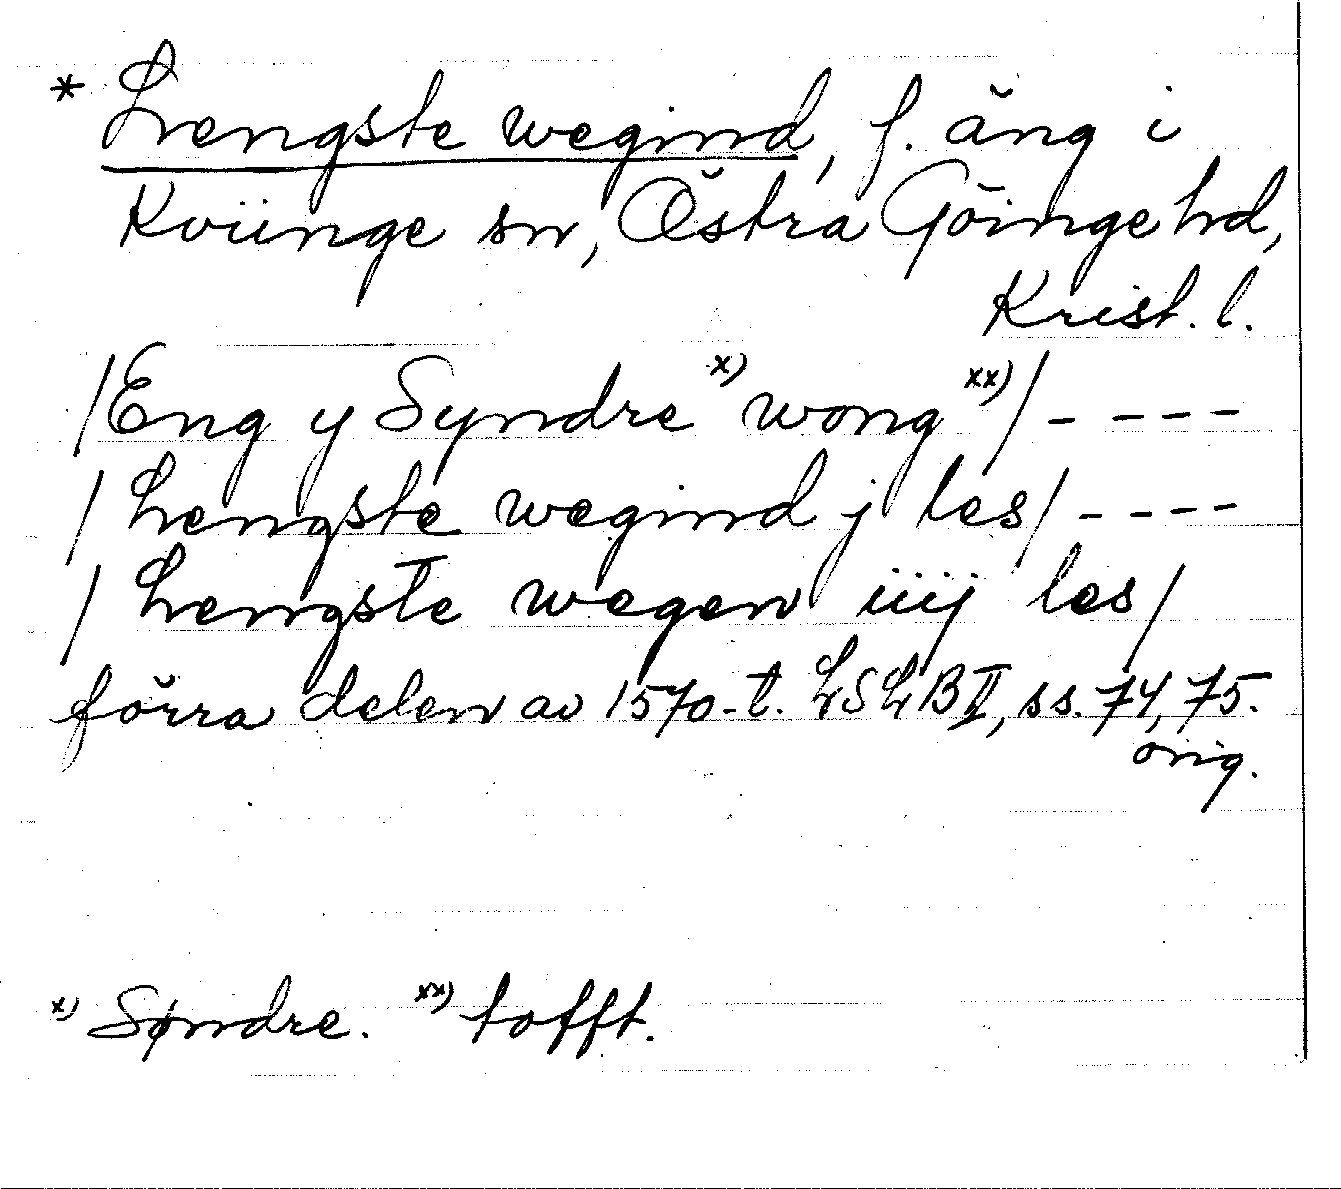 * Lengste wegind, f. äng i
Kviinge sn, Östra Göinge hd,
Krist. l.
/Eng y Syndre x) wong xx)/ - - - -
/ Lengste wegind j les/ - - - -
/ Lengste wegen iiij les/
förra delen av 1570-t. LSLB II, ss. 74, 75.
orig.
x) Søndre. xx) tofft.